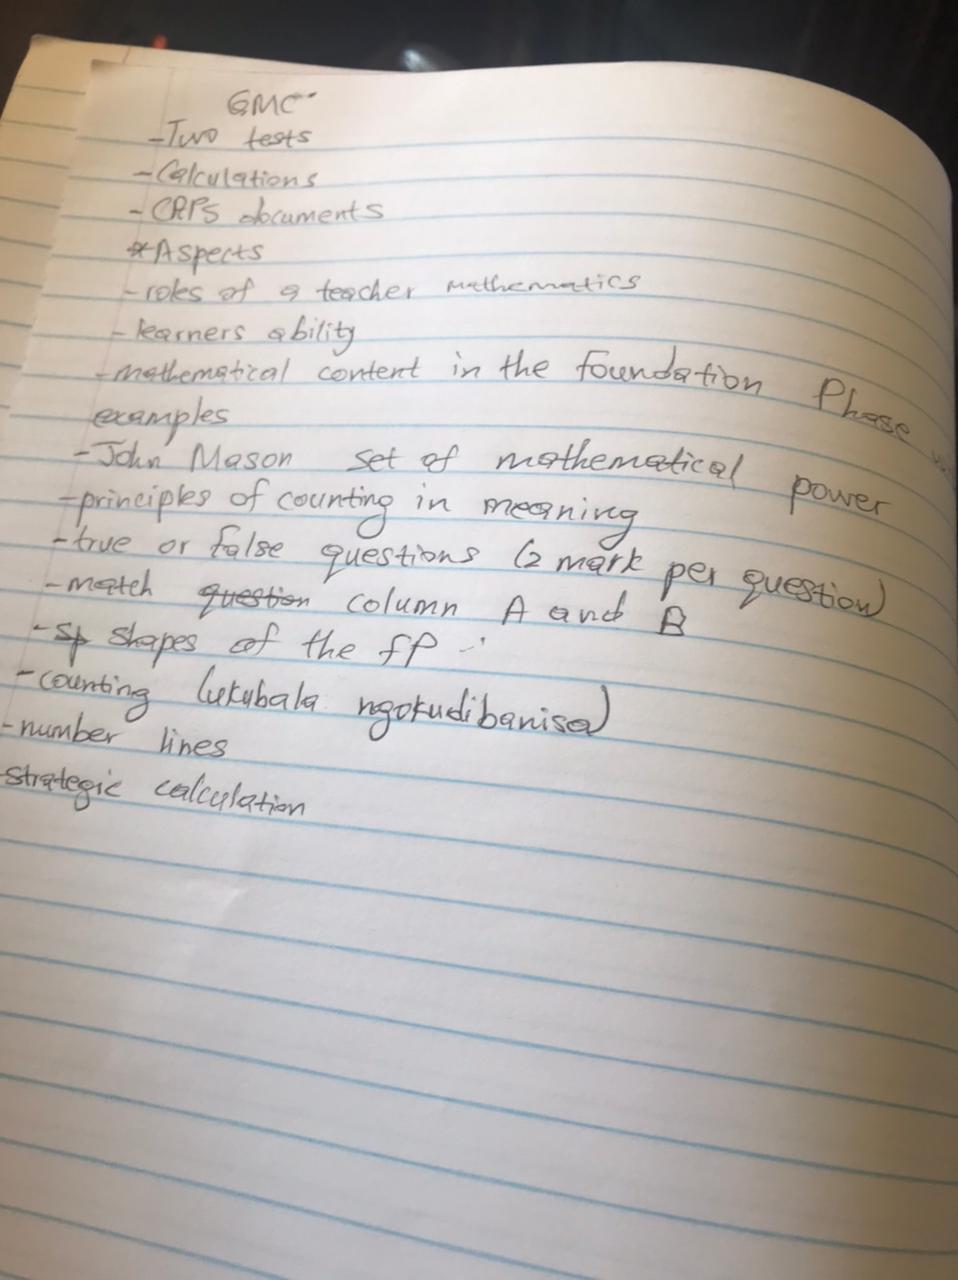 GMC
-Two tests
-Calculations
-CAPS documents
*Aspects
-roles of a teacher mathematics
-learners ability
-mathematical content in the foundation Phase
examples
-John Mason set of mathematical power
-principles of counting in meaning
-true or false questions (2 mark per question)
-match question column A and B
-sp shapes of the fP
-counting (ukubala ngokudibanisa)
-number lines
strategic calculation